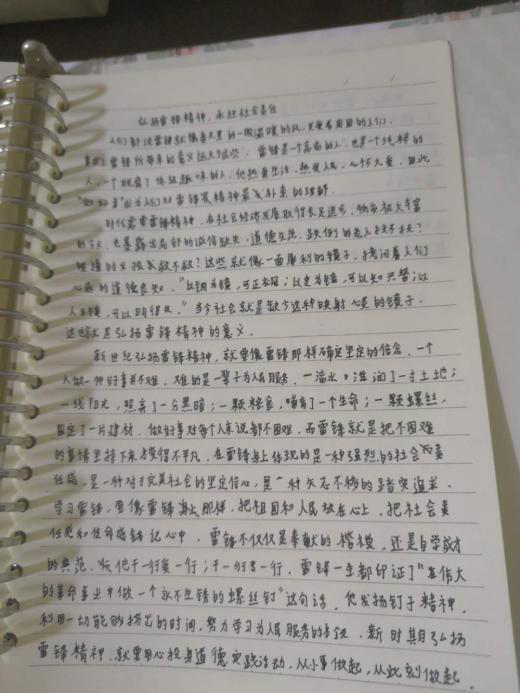 弘扬雷锋精神，承担社会责任
人们都说雷锋就像春天里的一股温暖的风，关爱着周围的人们。
事实上雷锋所带来的意义远大这些。雷锋是一个高尚的人，也是一个纯粹的
人，一个脱离了低级趣味的人，他热爱生活，热爱人民，心怀大爱，因此
"做好事"成为人们对雷锋莫精神最为朴素的理解
时代需要雷锋精神，在社会经济发展取得长足进步，物质极大丰富
的今天，也暴露出局部的诚信缺失，道德失范，跌倒的老人扶不扶？
被撞的女孩救不救？这些就像一面犀利的镜子，拷问着人们
心底的道德良知。"以铜为镜，可正衣冠；以史为镜，可以知兴替；以
人为镜，可以明得失。"当今社会就是缺少这种映射心灵的镜子，
这也就是弘扬雷锋精神的意义。
新世纪弘扬雷锋精神，就要像雷锋那样确定坚定的信念，一个
人做一件好事并不难，难的是一辈子为人民服务，一滴水，滋润了一寸土地；
一线阳光，照亮了一分黑暗；一颗粮食，哺育了一个生命；一颗螺丝，
固定了一片建材，做好事对每个人来说都不困难，而雷锋就是把不困难
的事情坚持下来才变得不平凡，在雷锋身上体现的是一种强烈的社会责
任感，是一种对于完美社会的坚定信心，是一种矢志不移的踏实追求。
学习雷锋，要像雷锋身上那样，把祖国和人民放在心上，把社会责
任感和使命感铭记心中，雷锋不仅仅是奉献的楷模，还是自学成才
的典范，他干一行爱一行；干一行专一行，雷锋一生都印证了"在伟大
的革命事业中做一个永不生锈的螺丝钉"这句话，他发扬钉子精神，
利用一切能够挤出的时间，努力学习为人民服务的本领，新时期弘扬
雷锋精神，就要用心投身道德实践活动，从小事做起，从此刻做起。